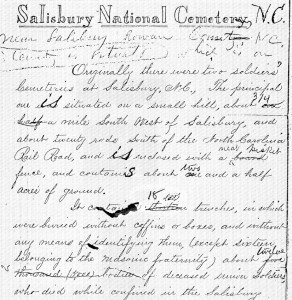 Salisbury National Cemetery, N.C.
near Salisbury Rowan County N.C.
Originally there were two soldiers'
Cemeteries at Salisbury, N.C., The principal
one is situated on a small hill, about 3/4
half a mile South West of Salisbury, and
about twenty rods South of the North Carolina
Rail Road, and is enclosed with a neat Picket
fence, and contains about two and a half
acres of ground.
It contains 18 trenches, in which
were buried without coffins or boxes, and without
any means of identifying them, (except sixteen
belonging to the Masonic fraternity) about twelve
thousand of deceased union soldiers
who died while confined in the Salisbury